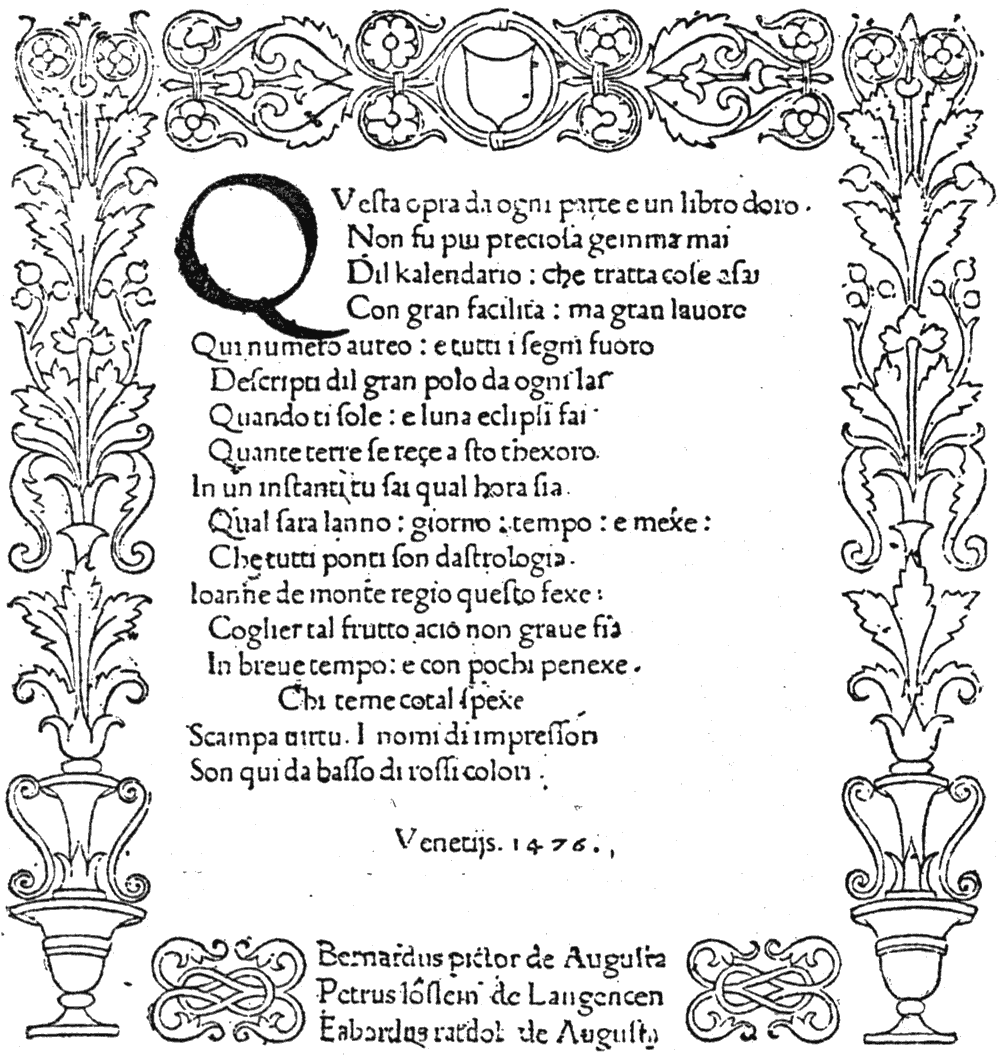 QVeſta opra da ogni parte e un libro doro.
Non fu piu precioſa gemma mai
Dil kalendario : che tratta coſe aſai
Con gran facilita : ma gran lauoro
Qui numero aureo : e tutti i ſegni fuoro
Deſcripti dil gran polo da ogni lai
Quando ti ſole : e luna eclipſi fai
Quante terre ſe reçe a ſto thexoro.
In un inſtanti tu ſai qual hora ſia.
Qual ſara lanno : giorno : tempo : e mexe :
Che tutti ponti ſon daſtrologia.
Ioanne de monte regio queſto fexe :
Coglier tal frutto acio non graue ſia
In breue tempo : e con pochi penexe.
Chi teme cotal ſpexe
Scampa uirtu. I nomi di impreſſori
Son qui da baſſo di roſſi colori.
Venetijs. 1476.
Bernardus pictor de Auguſta
Petrus löſlein de Langencen
Erhardus ratdolt de Auguſta